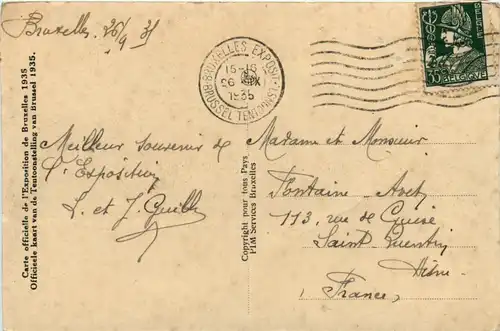 Bruxelles 26/9 35
BRUXELLES EXPOSIT
15-16
26 IX
1935
BRUSSEL TENTOONST
35
BELGIQUE
Carte officielle de l'Exposition de Bruxelles 1935
Officieele kaart van de Tentoonstelling van Brussel 1935.
Meilleur souvenir de
l'Exposition
L. et J.
Copyright pour tous Pays
PIM Services Bruxelles
Madame et Monsieur
Fontaine
113, rue de Guise
Saint Quentin
Aisne
(France)